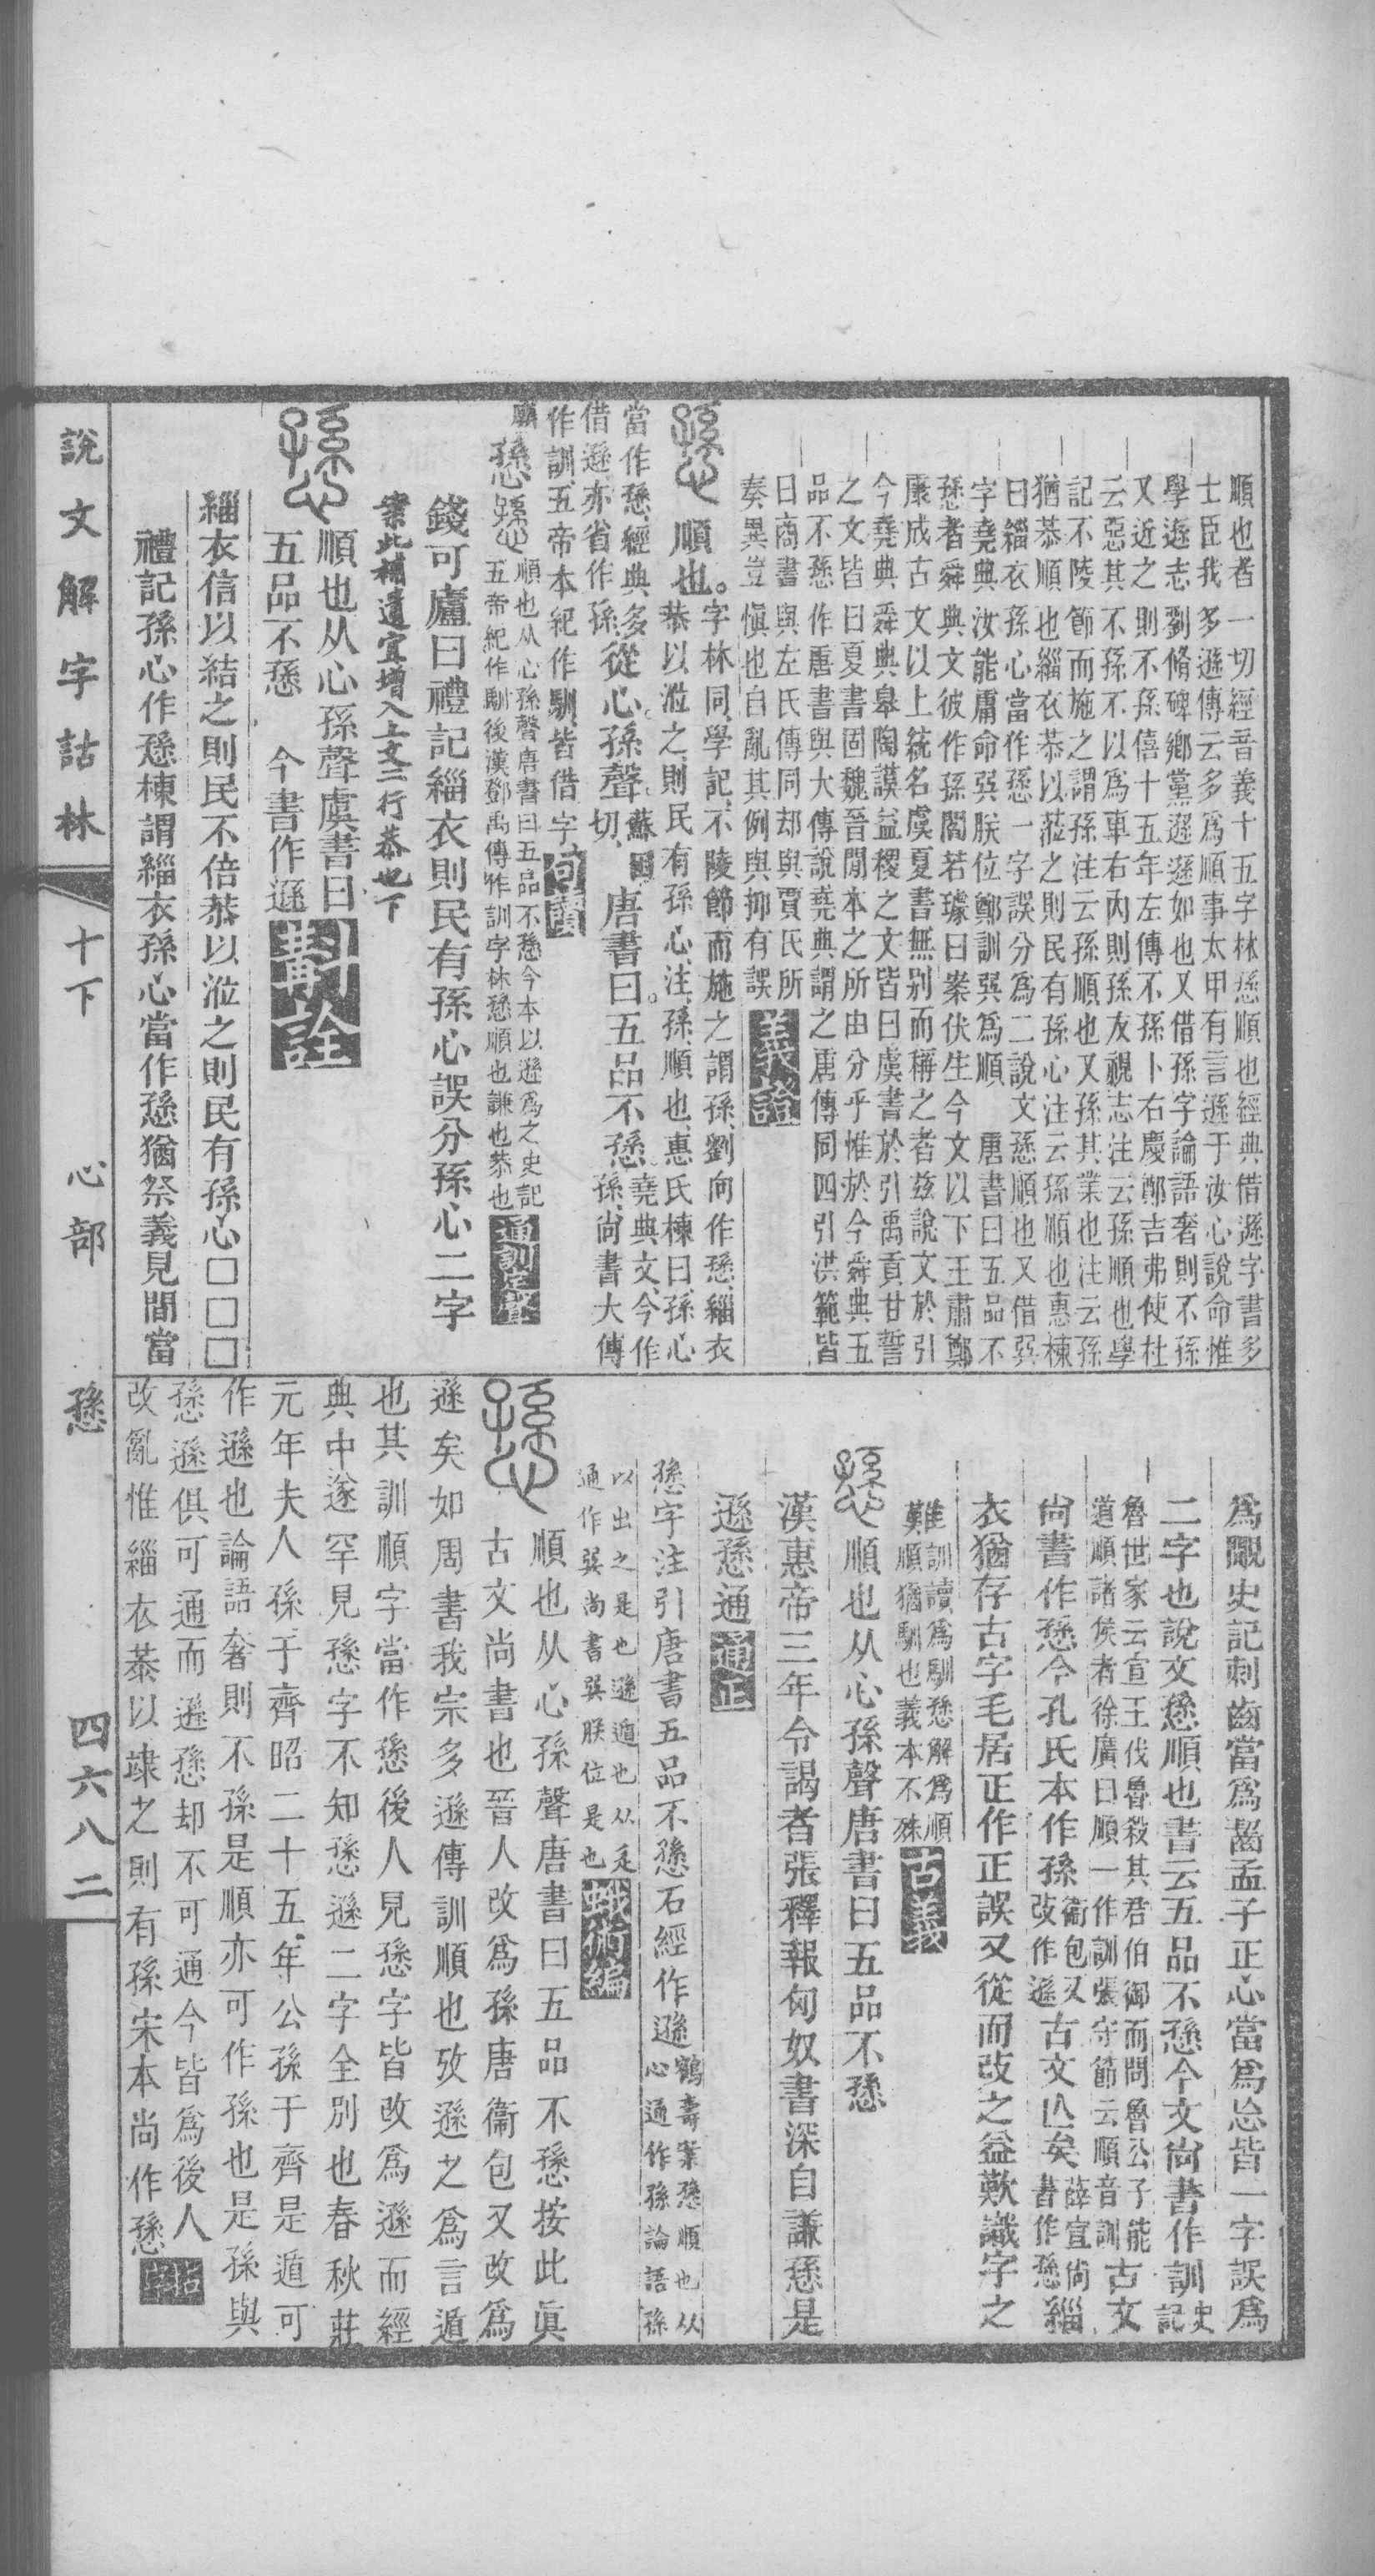 順也者一切經音義十五字林愻順也經典借遜字書多
士臣我多遜傳云多爲順事太甲有言遜于汝心說命惟
學遜志劉脩碑鄉黨遜遜如也又借孫字論語奢則不孫
又近之則不孫僖十五年左傳不孫卜右慶鄭吉弗使杜
云惡其不孫不以爲車右內則孫友視志注云孫順也學
記不陵節而施之謂孫注云孫順也又孫其業也注云孫
猶恭順也緇衣恭以蒞之則民有孫心注云孫順也惠棟
曰緇衣孫心當作愻一字誤分爲二說文愻順也又借巽
字堯典汝能庸命巽朕位鄭訓巽爲順　唐書曰五品不
愻者舜典文彼作孫閻若璩曰案伏生今文以下王肅鄭
康成古文以上統名虞夏書無别而稱之者玆說文於引
今堯典舜典臯陶謨益稷之文皆曰虞書於引禹貢甘誓
之文皆曰夏書固魏晉閒本之所由分乎惟於今舜典五
品不愻作唐書與大傳說堯典謂之唐傳同四引洪範皆
曰商書與左氏傳同却與賈氏所
奏異豈愼也自亂其例與抑有誤 義證
愻 順也。字林同學記、不陵節而施之謂孫、劉向作愻、緇衣
恭以涖之、則民有孫心、注、孫、順也、惠氏棟曰、孫心
當作愻、經典多
借遜亦省作孫 從心。孫聲。蘇困切、唐書曰。五品不愻。堯典文、今作
孫、尚書大傳
作訓、五帝本紀作馴、皆借字、 句讀
愻 順也从心孫聲唐書曰五品不愻今本以遜爲之史記
五帝紀作馴後漢鄧禹傳作訓字林愻順也謙也恭也 通訓定聲
錢可廬曰禮記緇衣則民有孫心誤分孫心二字
案此補遺宜增入上文二行恭也下
愻 順也从心孫聲虞書曰
五品不愻　今書作遜 斠詮
緇衣信以結之則民不倍恭以涖之則民有孫心□□□
禮記孫心作愻棟謂緇衣孫心當作愻猶祭義見間當
爲覸史記刺齒當爲齧孟子正心當爲忘皆一字誤爲
二字也說文愻順也書云五品不愻今文尚書作訓史記
魯世家云宣王伐魯殺其君伯御而問魯公子能
道順諸侯者徐廣曰順一作訓張守節云順音訓 古文
尚書作愻今孔氏本作孫衞包又
改作遜 古文亾矣薛宣尚
書作愻 緇
衣猶存古字毛居正作正誤又從而改之益歎識字之
難訓讀爲馴愻解爲順
順猶馴也義本不殊 古義
愻 順也从心孫聲唐書曰五品不愻
漢惠帝三年令謁者張釋報匈奴書深自謙愻是
遜愻通 通正
愻字注引唐書五品不愻石經作遜鶴壽案愻順也从
心通作孫論語孫
以出之是也遜遁也从辵
通作巽尚書巽朕位是也 蛾術編
愻 順也从心孫聲唐書曰五品不愻按此眞
古文尚書也晉人改爲孫唐衞包又改爲
遜矣如周書我宗多遜傳訓順也攷遜之爲言遁
也其訓順字當作愻後人見愻字皆改爲遜而經
典中遂罕見愻字不知愻遜二字全別也春秋莊
元年夫人孫于齊昭二十五年公孫于齊是遁可
作遜也論語奢則不孫是順亦可作孫也是孫與
愻遜俱可通而遜愻却不可通今皆爲後人
改亂惟緇衣恭以涖之則有孫宋本尚作愻
說文解字詁林　十下　心部　愻　四六八二